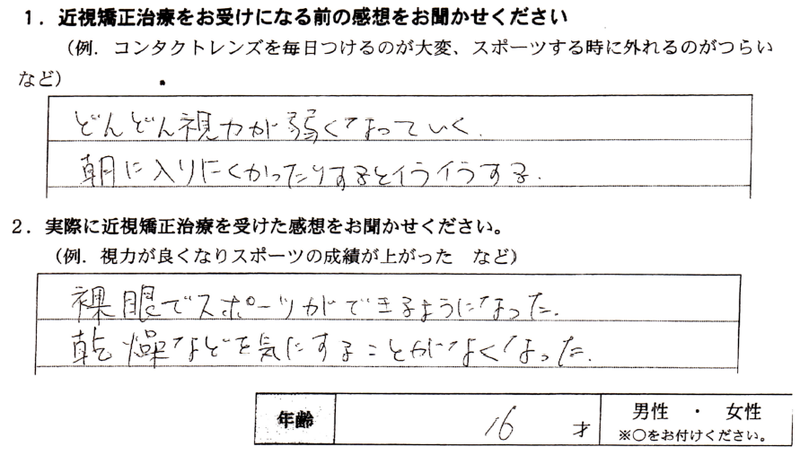 1．近視矯正治療をお受けになる前の感想をお聞かせください
（例．コンタクトレンズを毎日つけるのが大変、スポーツする時に外れるのがつらい
など）
どんどん視力が弱くなっていく．
朝に入りにくかったりするとイライラする．
2．実際に近視矯正治療を受けた感想をお聞かせください。
（例．視力が良くなりスポーツの成績が上がった　など）
裸眼でスポーツができるようになった．
乾燥などを気にすることがなくなった．
年齢　16　才　男性　・　女性
※○をお付けください。